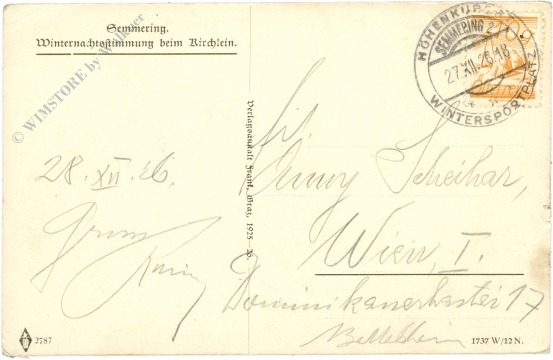 Semmering.
Winternachtsstimmung beim Kirchlein.
© WIMSTORE by Wallner
HÖHENKUR
SEMMERING 2
27.XII.26.18
WINTERSPORTPLATZ
Verlagsanstalt Frank, Graz, 1925 - 26
28. XII 26.
Gruss
Scheihar,
Wien, I.
Dominikanerbastei 17
Bettelheim
2787
1737 W/12 N.